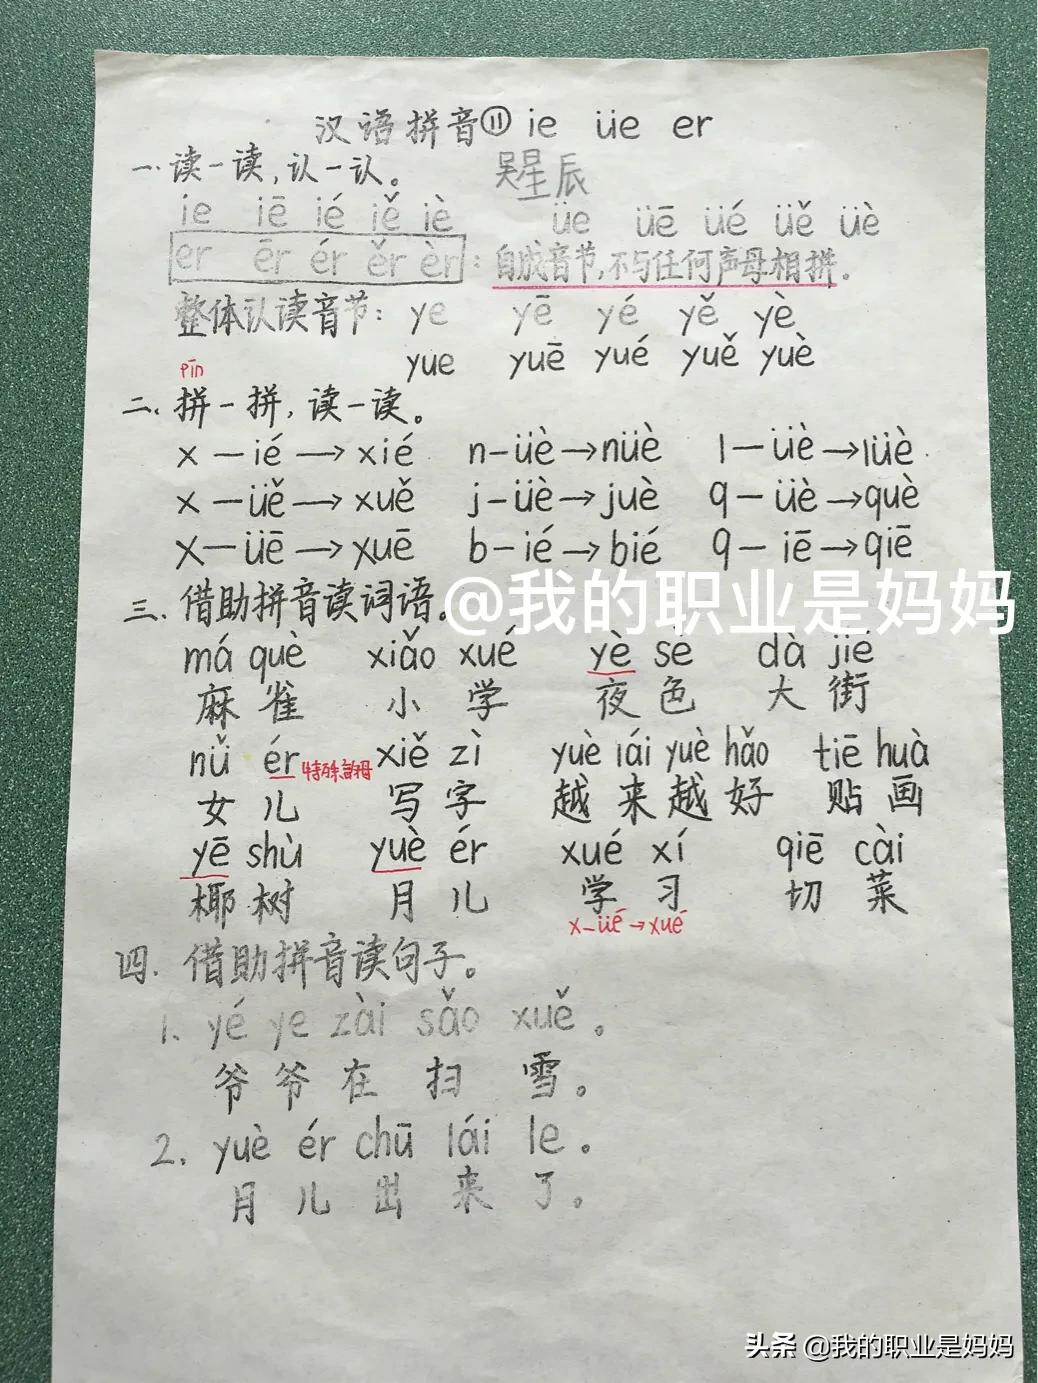 汉语拼音⑪ ie üe er
一.读一读,认一认。 吴星辰
ie iē ié iě iè üe üē üé üě üè
er ēr ér ěr èr :自成音节,不与任何声母相拼.
整体认读音节: ye yē yé yě yè
yue yuē yué yuě yuè
pīn
二.拼一拼,读一读。
x—ié→xié n-üè→nüè l—üè→lüè.
x—üě→xuě j-üè→juè q—üè→què
x—üē→xuē b-ié→bié q—iē→qiē
三.借助拼音读词语。
@我的职业是妈妈
má què xiǎo xué yè sè dà jiē
麻雀 小学 夜色 大街
nǚ ér 特殊韵母 xiě zì yuè lái yuè hǎo tiē huà
女儿 写字 越来越好 贴画
yē shù yuè ér xué xí qiē cài
椰树 月儿 学习 切菜
x-üé→xué
四.借助拼音读句子。
1. yé ye zài sǎo xuě 。
爷爷在扫雪。
2. yuè ér chū lái le 。
月儿出来了。
头条 @我的职业是妈妈